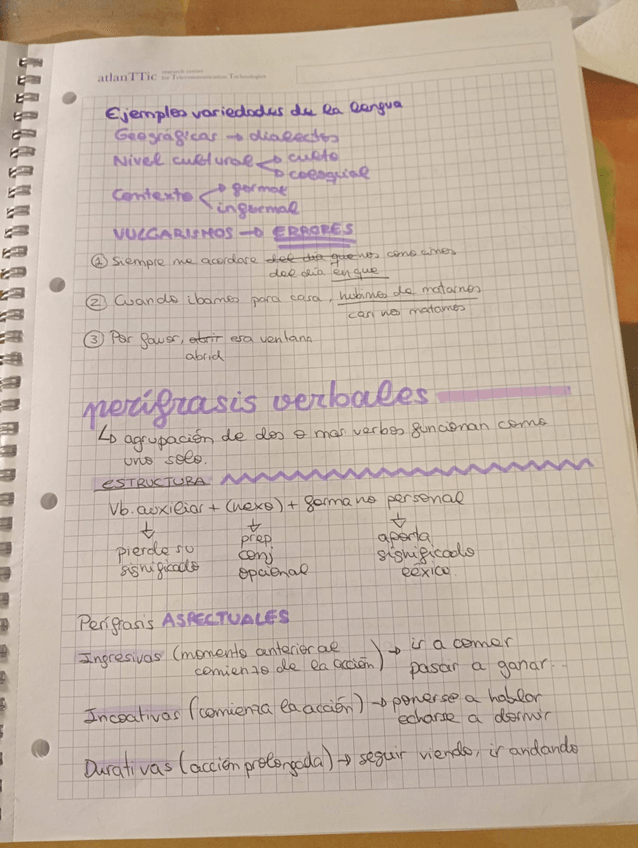 atlanTTic research center for Telecommunication Technologies
Ejemplos variedades de la lengua
Geográficas → dialectos
Nivel cultural → culto
→ coloquial
Contexto → formal
→ informal
VULGARISMOS → ERRORES
① Siempre me acordare del dia que nos conocimos
del dia en que
② Cuando ibamos para casa, hubimos de matarnos
casi nos matamos
③ Por favor, abrir esa ventana
abrid
perífrasis verbales
↳ agrupación de dos o mas verbos funcionan como
uno solo.
ESTRUCTURA
Vb. auxiliar + (nexo) + forma no personal
↓ ↓ ↓
pierde su prep aporta
significado conj significado
opcional léxico.
Perífrasis ASPECTUALES
Ingresivas (momento anterior al → ir a comer
comienzo de la acción) pasar a ganar..
Incoativas (comienza la acción) → ponerse a hablar
echarse a dormir
Durativas (acción prolongada) → seguir viendo, ir andando